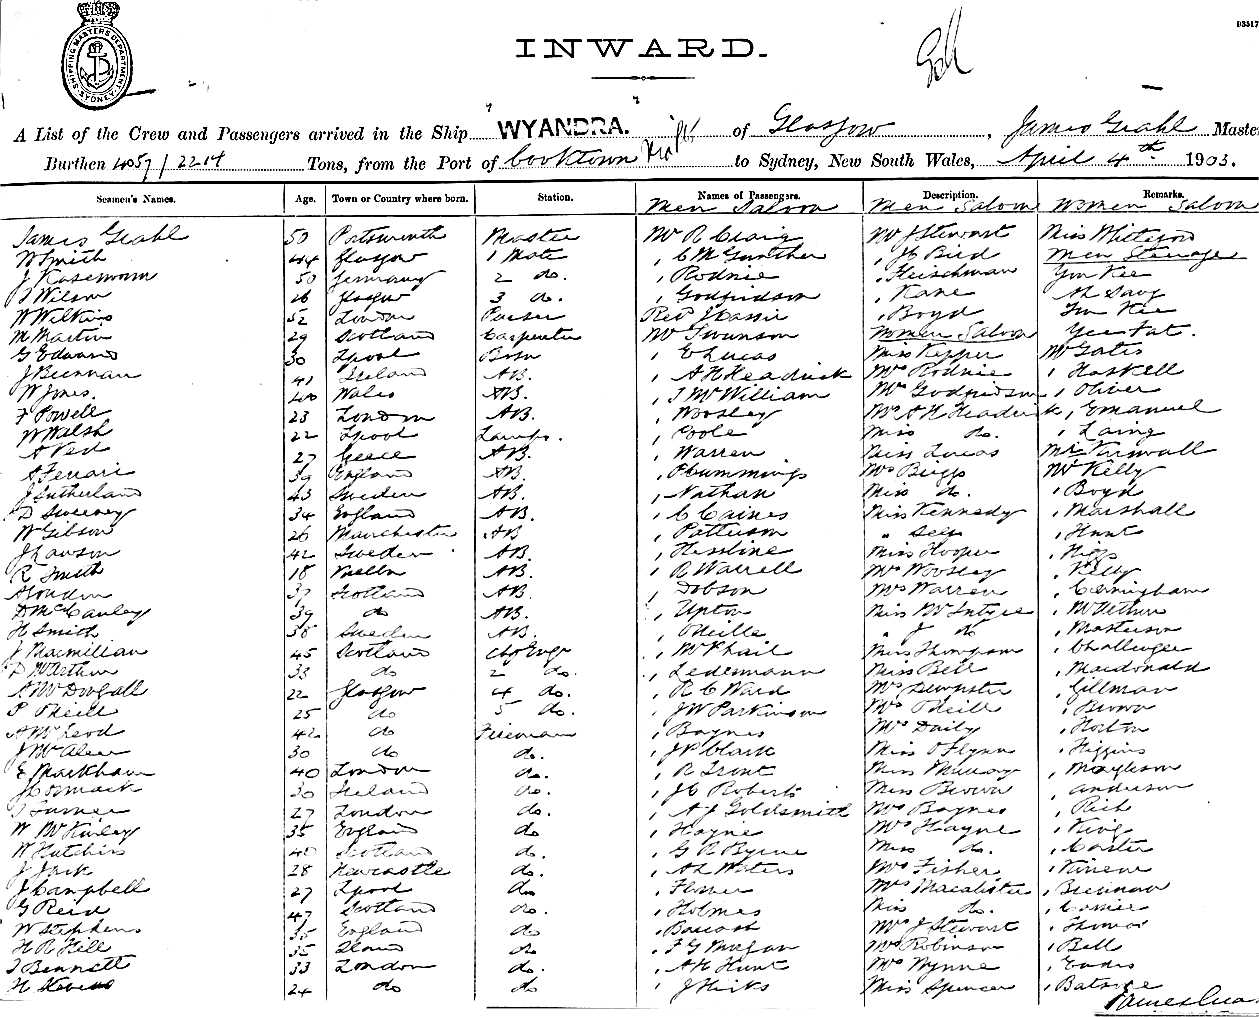 D3517
SHIPPING MASTERS DEPARTMENT SYDNEY
INWARD.
A List of the Crew and Passengers arrived in the Ship WYANDRA. of Glasgow, James Grahl Master
Burthen 4057/2214 Tons, from the Port of Cooktown to Sydney, New South Wales, April 4th 1903.
Seamen's Names. Age. Town or Country where born. Station. Names of Passengers. Description. Remarks.
Men Saloon Men Saloon Women Saloon
James Grahl 50 Patsworth Master Mr R Craig Mr J Stewart Miss
W Smith 44 Glasgow 1 Mate , C M Gunther , J C Bird Men Steerage
J 50 Germany 2 do. , Rodnie , Fleischman Yon Kee
J Wilson 26 Glasgow 3 do. , Godfridson , Kane Ah
W Wilkins 52 London Purser Revd J , Boyd Kee
M Martin 29 Scotland Carpenter Mr Swanson Women Saloon Yee Fat.
G Edward 30 Lpool Bosn , E Lucas Miss Kepper Mr Gates
J Brennan 41 Ireland AB. , A H Headrick Mrs Rodnie , Haskell
W Jones. 40 Wales AB. , J McWilliam Mrs Godfridson , Oliver
F Powell 23 London AB. , Woosley Mrs A H Headrick , Emanuel
W Walsh 22 Lpool Lamps. , Poole Miss do. , Laing
A 27 Greece AB. , Warren Miss Lucas
A Ferrari 39 England AB. , P Cummings Mrs Briggs Mr Kelly
J Sutherland 43 Sweden AB. , Nathan Miss do. , Boyd
D Sweeney 34 England AB. , C Caines Miss Kennedy , Marshall
W Gibson 26 Manchester AB , Patterson " , Hunt
J Lawson 42 Sweden AB. , Hessline Miss Hooper , Higgs
R Smith 18 AB. , R Warrell Mrs Woosley , Kelly
37 Scotland AB. , Dobson Mrs Warren , Cunningham
D McCauley 39 do AB. , Upton Miss McIntyre , McArthur
H Smith 38 Sweden AB. , O'Neille " J do , Masterson
J Macmillan 45 Scotland Chf Engr , McPhail Miss Thompson , Challenger
D McArthur 33 do 2 do. , Ledermann Miss Bell , Macdonald
A McDougall 22 Glasgow 4 do. , R C Ward Mrs Dempster , Gillman
P O'Neill 25 do 5 do. , J W Parkinson Mrs O'Neille , Brown
A McLeod 42 do Fireman , Baynes Mrs Daily , Horton
J McAleer 30 do do. , J P Clark Miss O'Flynn , Higgins
E Markham 40 London do. , R Trout Miss Murray
J Cormack 30 Ireland do. , J C Roberts Miss Brown , Anderson
J Turner 27 London do. , A J Goldsmith Mrs Baynes , Reid
W McKinley 35 England do , Hayne Mrs Hayne , King
W Hutchins 40 Scotland do. , G R Byrne Miss do. , Carter
J Jack 28 Newcastle do. , A L Waters Mrs Fisher
J Campbell 27 Lpool do , Fisher Mrs Macalister , Brennan
G Reid 47 Scotland do. , Holmes Miss do.
W Stephens 35 England do Mrs J Stewart , Thomas
H R Hill 35 do , F G Mrs Robinson , Bell
J Bennett 33 London do. , A H Hunt Mrs Wynne , Eades
H Stevens 24 do do , J Hicks Miss Spencer